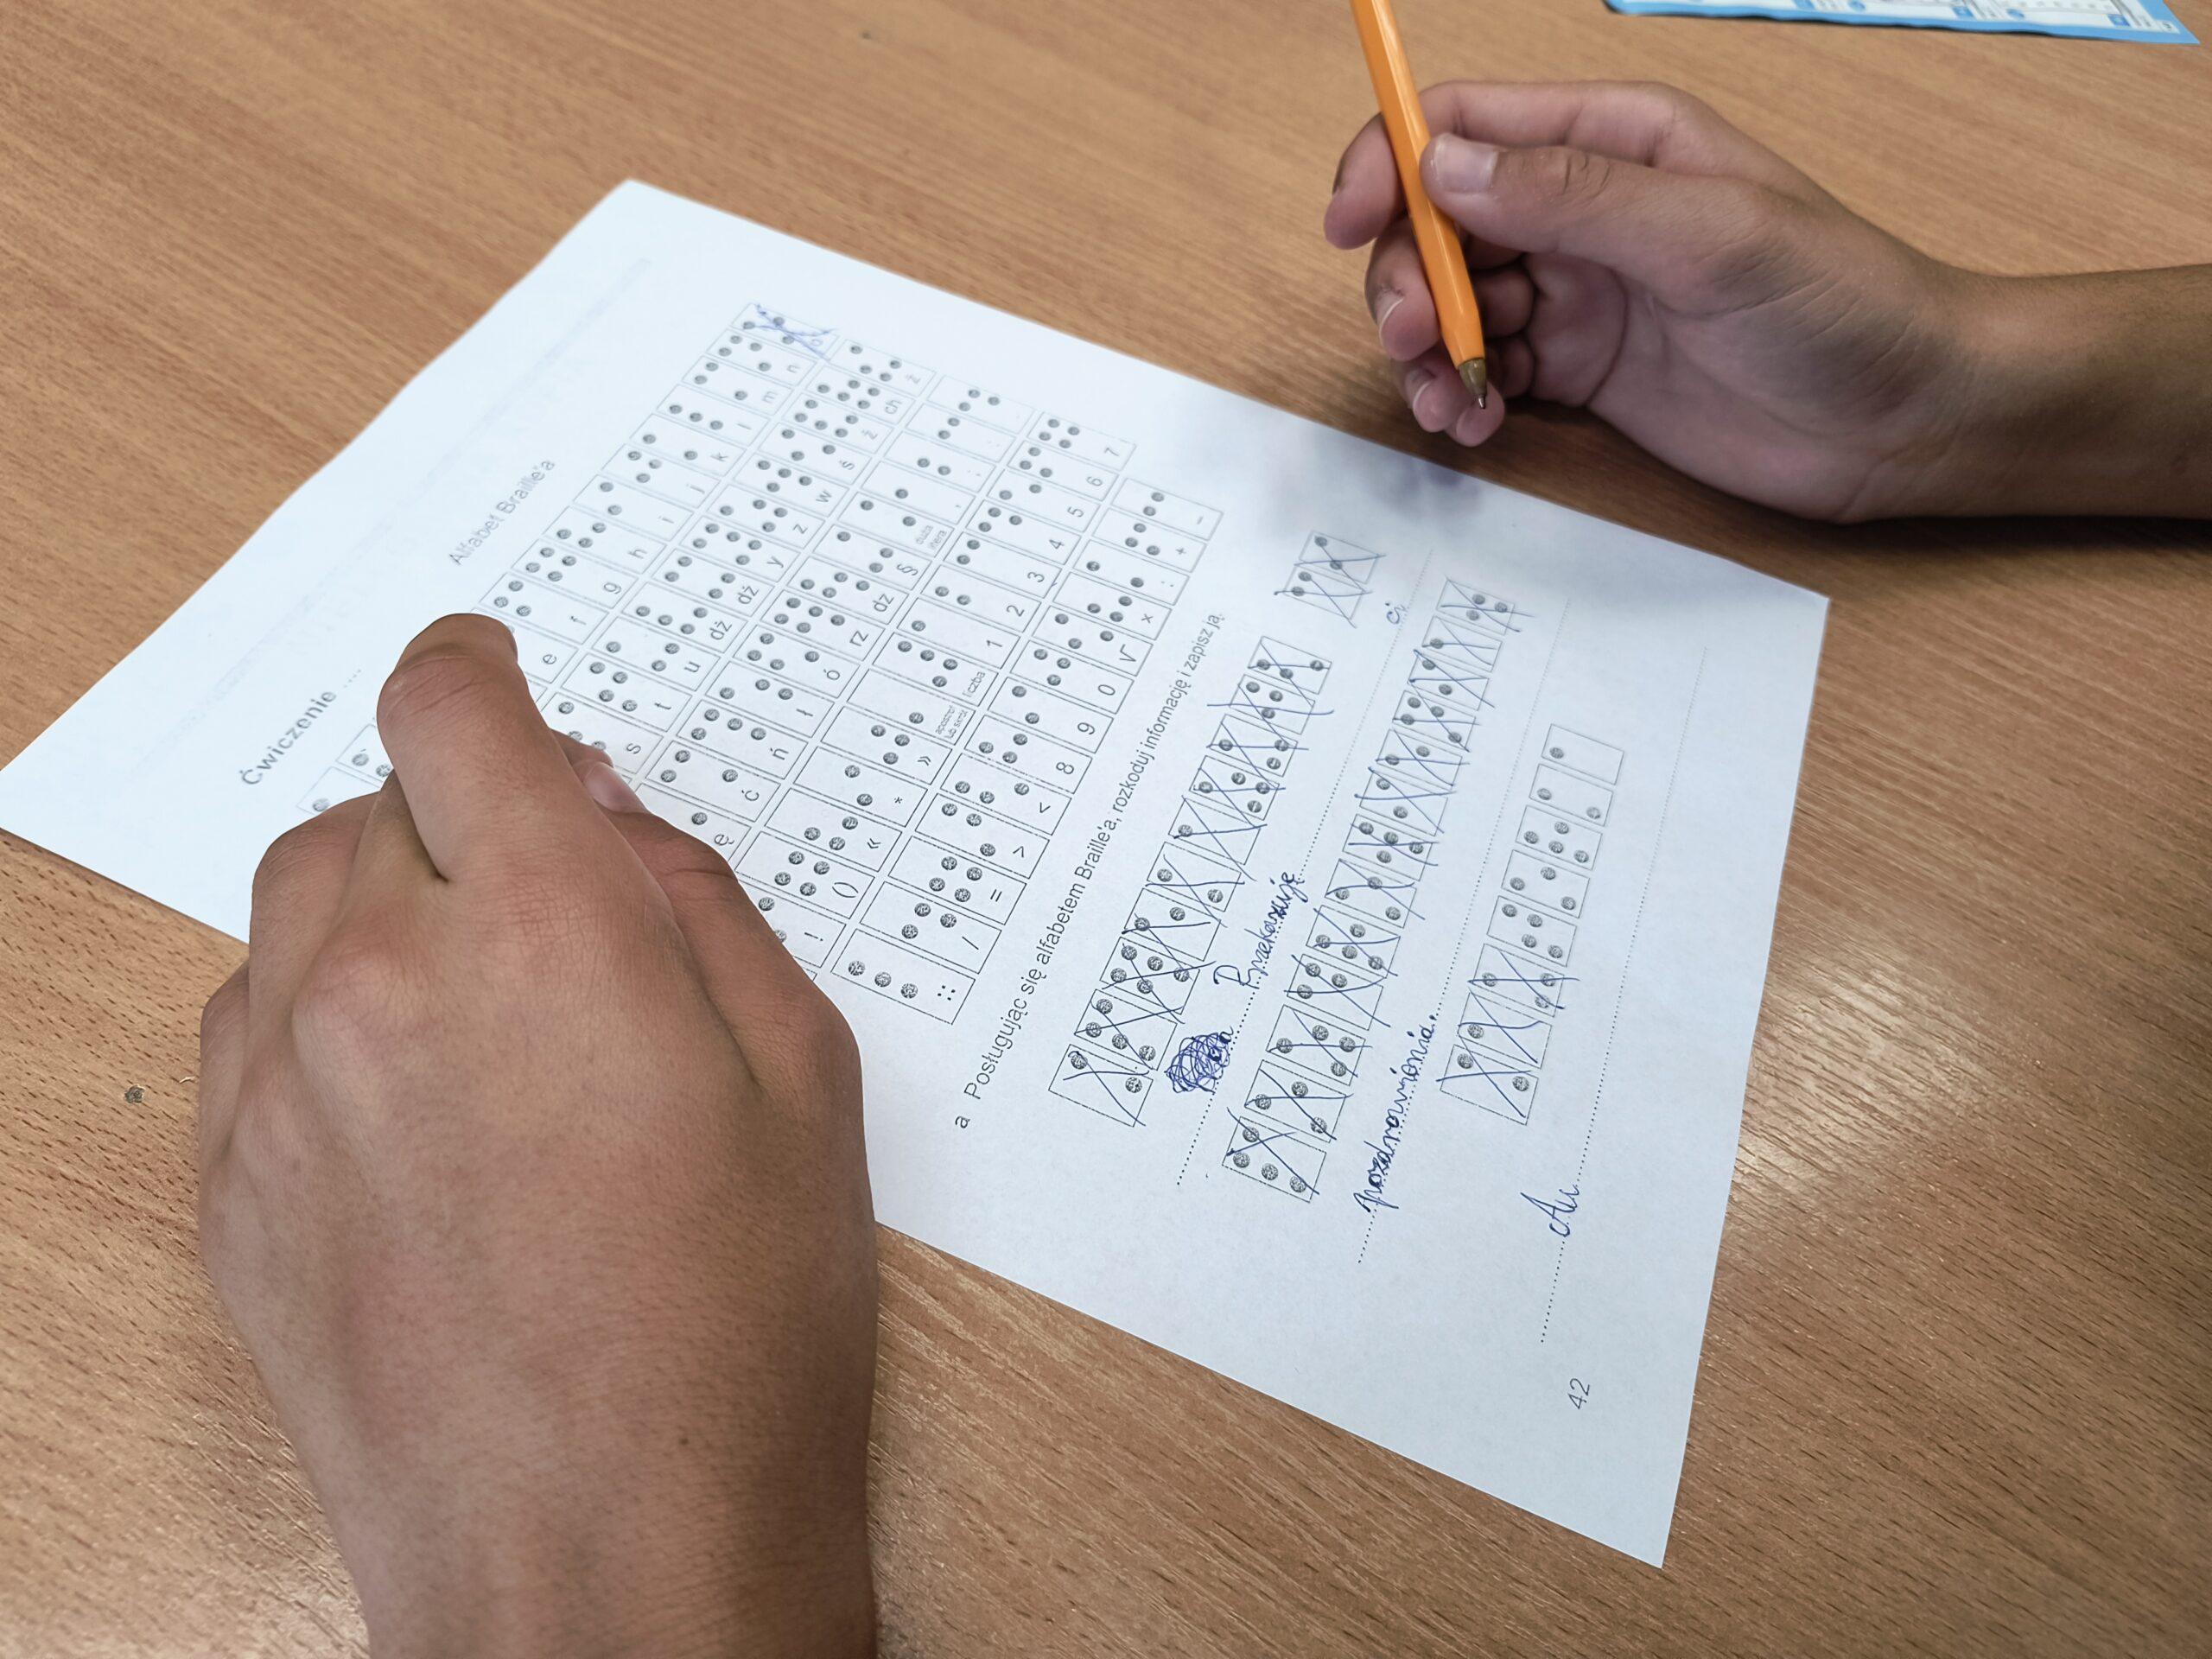 Ćwiczenie ....
Alfabet Braille'a
e f g h i j k l m n
s t u dż dź y z w ś ź ch ż
ę ć ń ł ó rz dz § duża litera , ; :
! () « * » apostrof lub skrót liczba 1 2 3 4 5 6 7
:: / = > < 8 9 0 √ × : + –
a Posługując się alfabetem Braille'a, rozkoduj informację i zapisz ją.
Przekazuję ci
pozdrowienia.
Au
42